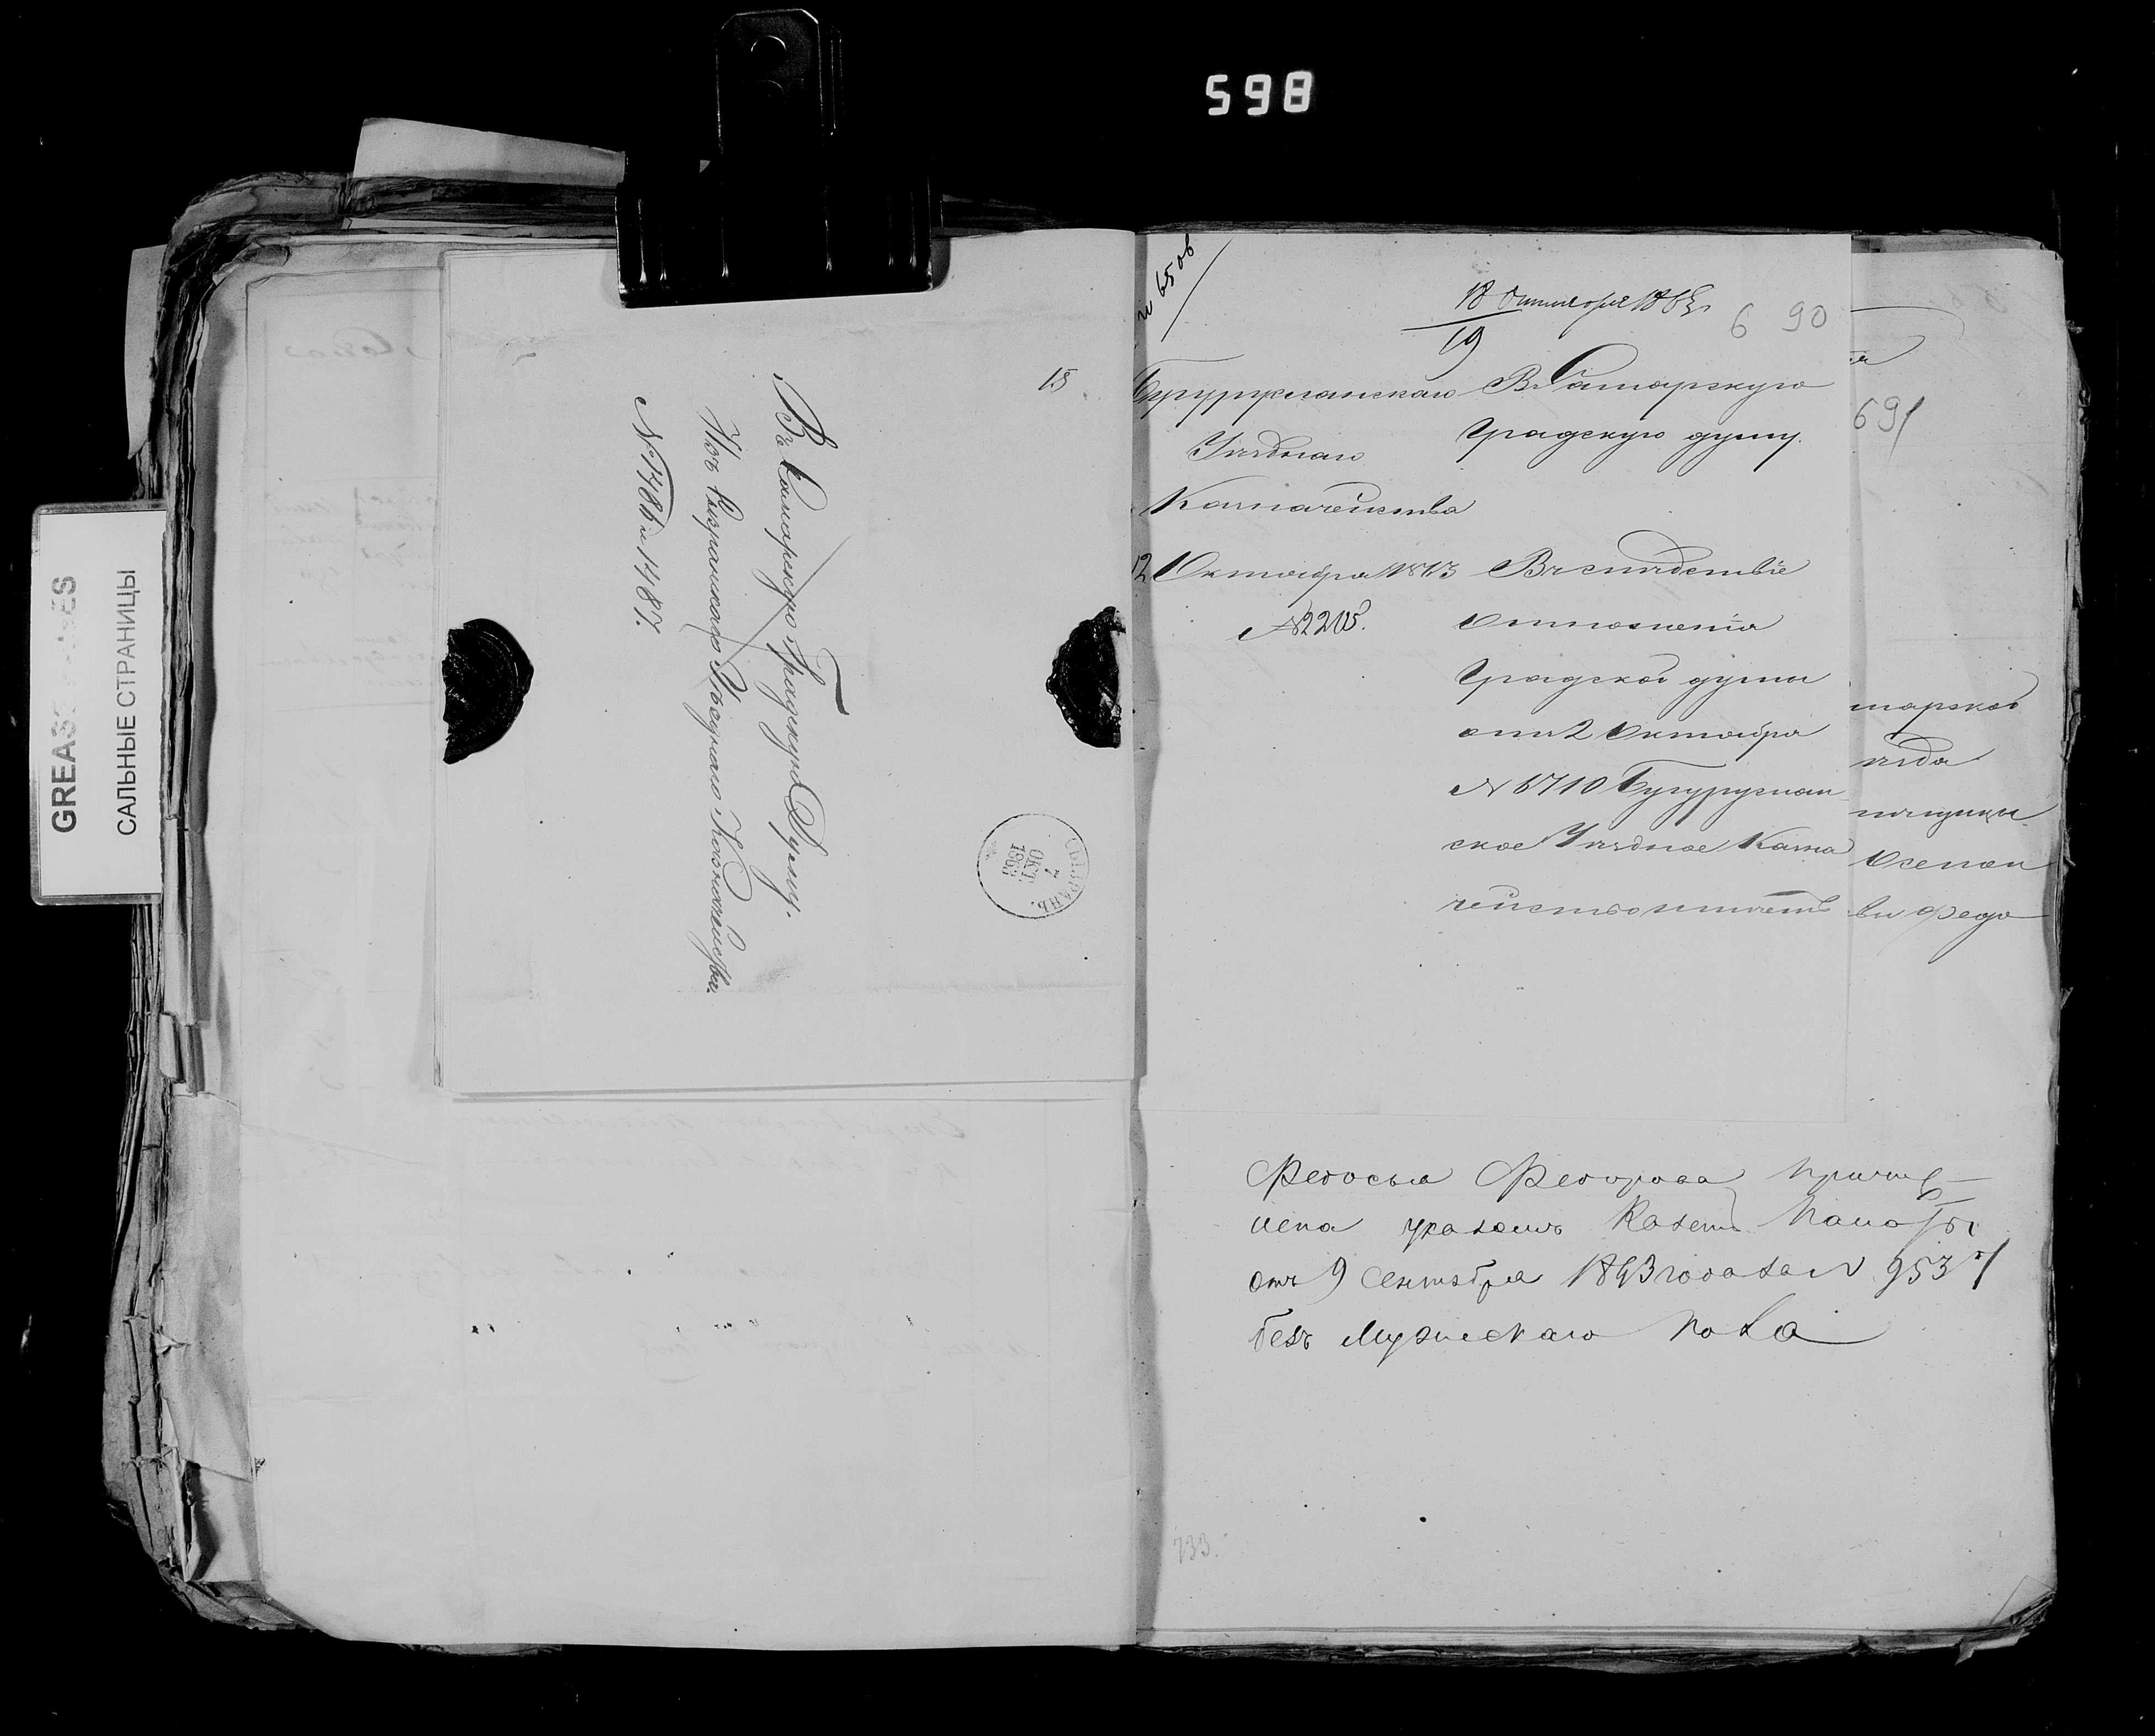 598
GREASE PAGES
САЛЬНЫЕ СТРАНИЦЫ
15
Въ Самарскую Градскую Думу.
Изъ Сызранскаго Уѣзднаго Казначейства.
№ 1486 и 1487.
СЫЗРАНЬ.
7
ОКТ.
1863
№ 6506
18 Октября 1863
19
6 90
Бугурусланскаго
Уѣзднаго
Казначейства
12 Октября 1863
№ 2205.
Въ Самарскую
Градскую думу.
Въ слѣдствіе
отношенія
Градской думы
отъ 2 Октября
№ 6710 Бугуруслан
ское Уѣздное Казна
чейство имѣетъ
691
марской
ѣзда
ви Федо
Федосья Федорова причис-
лена указомъ Казен Палаты
отъ 9 Сентября 1843 года за № 9537
безъ мужескаго пола
733.